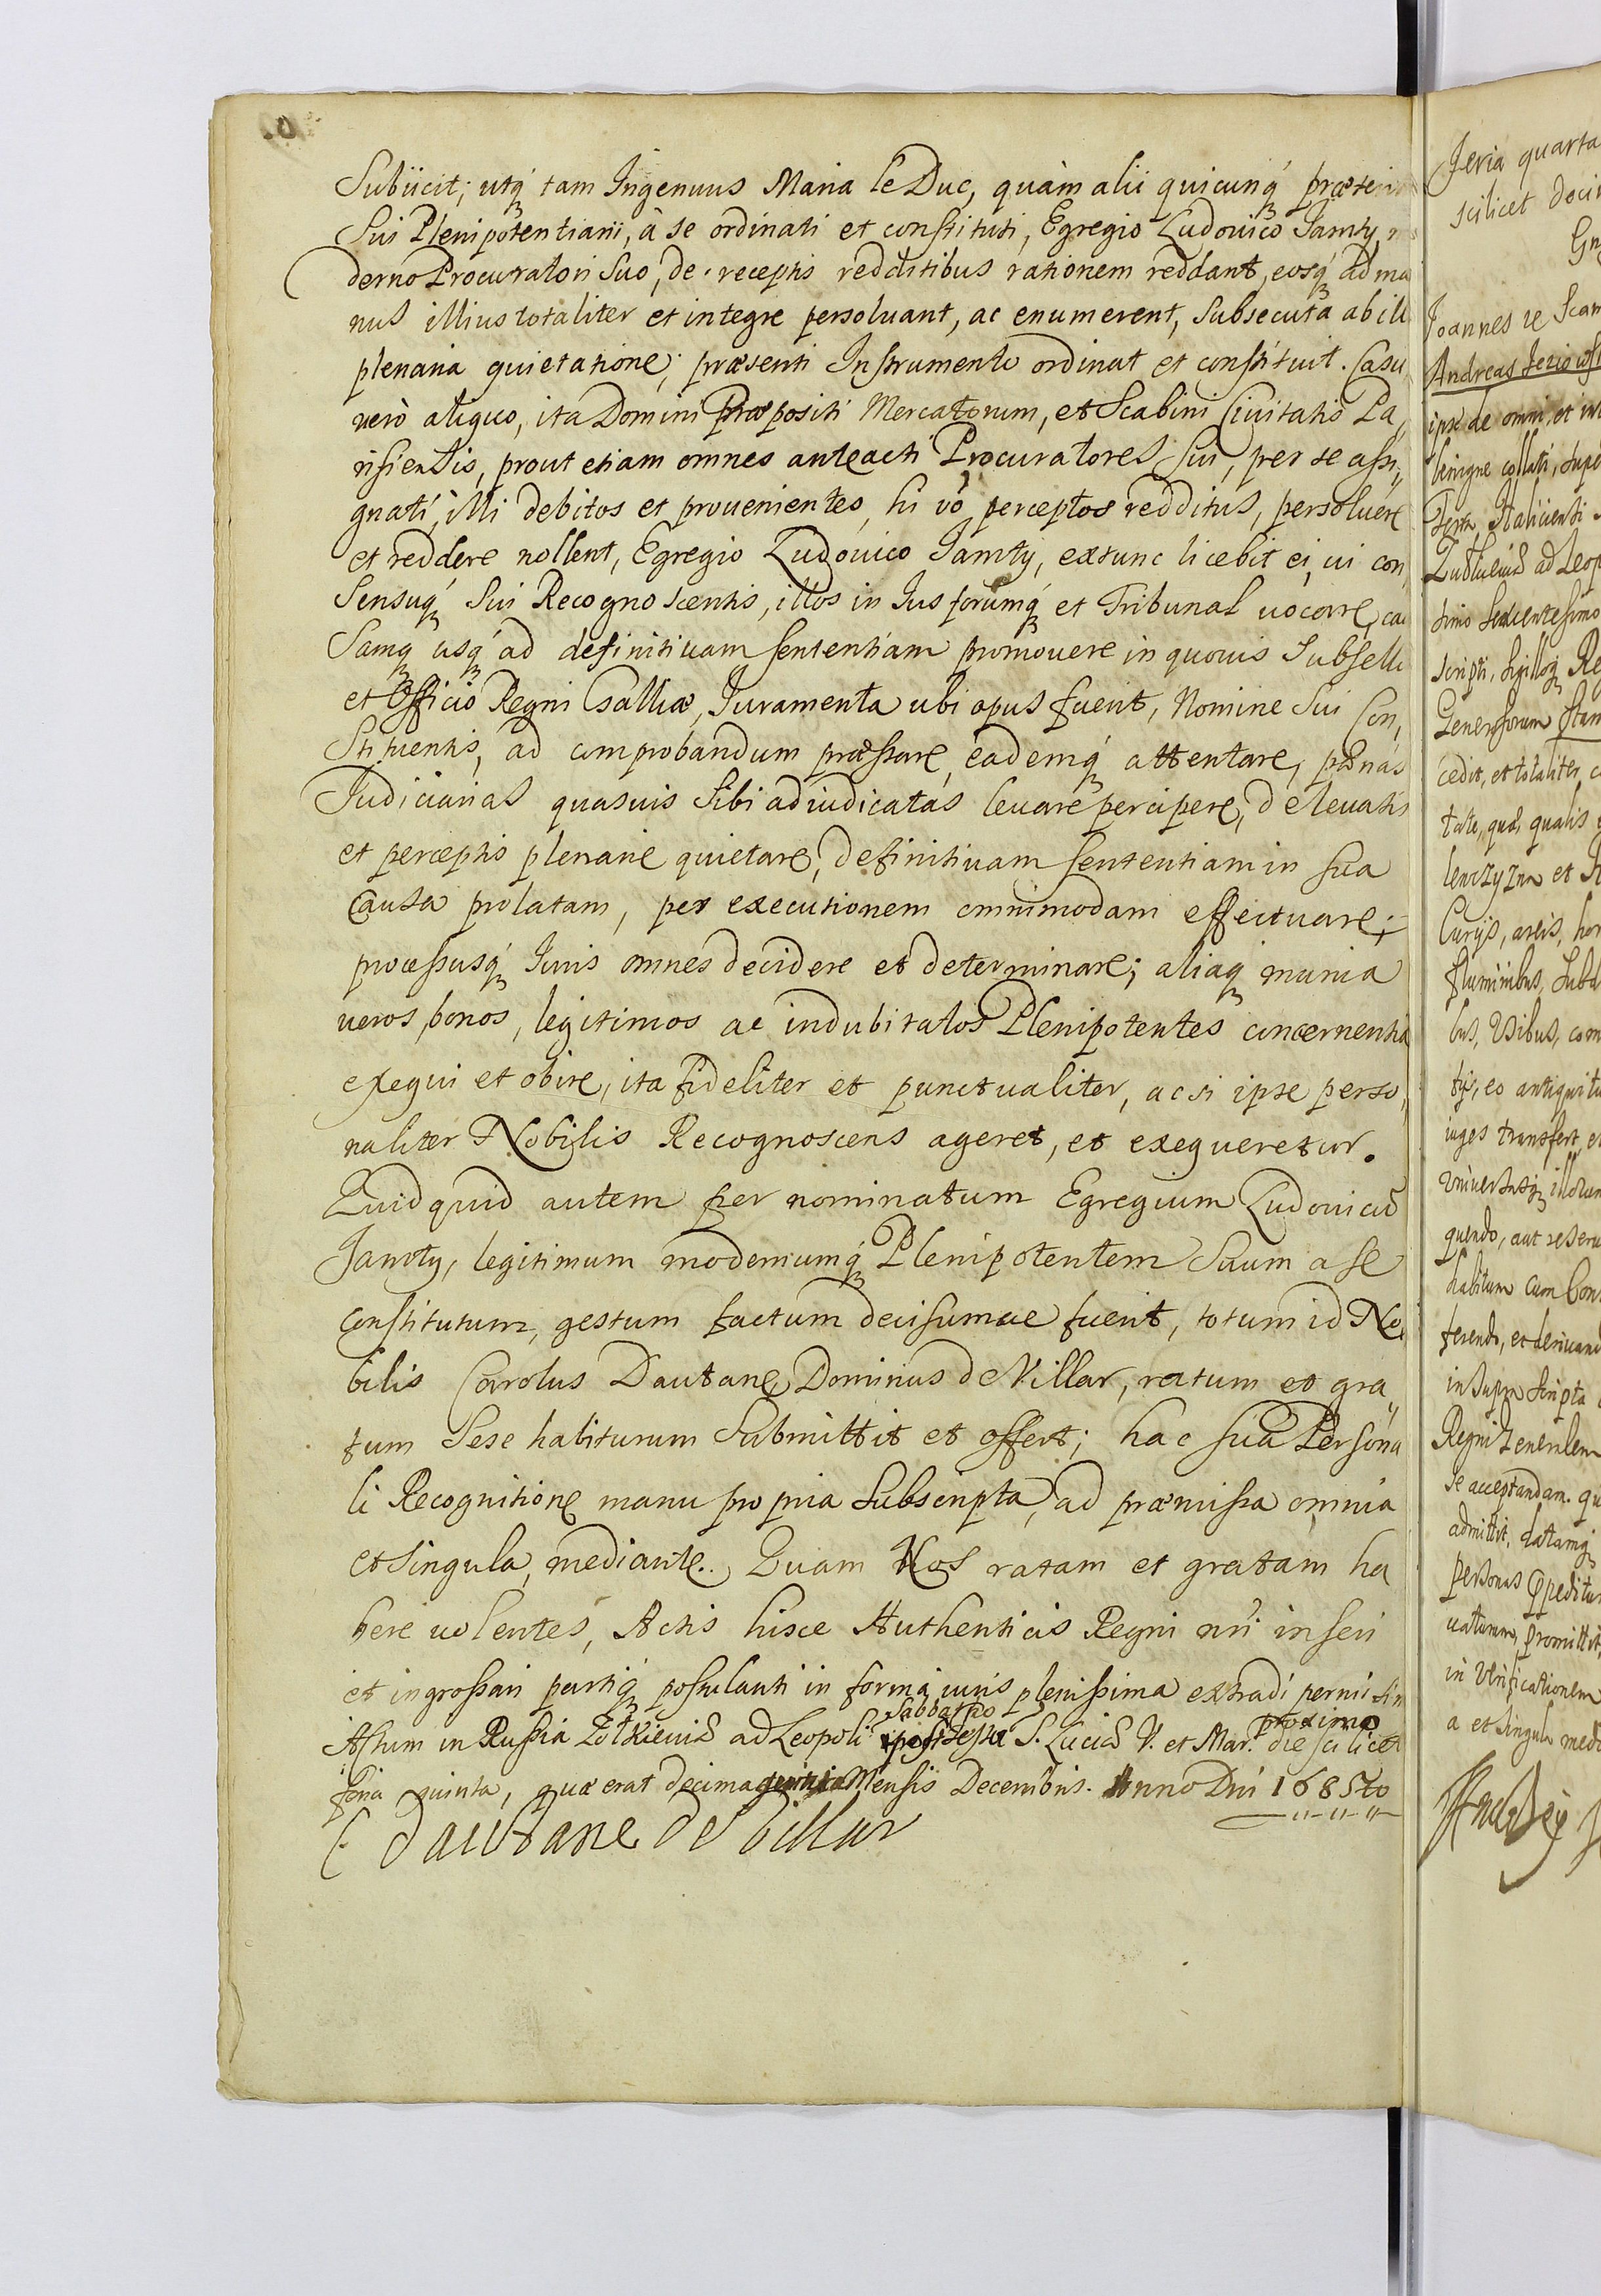 Subiicit; utq́ tam Ingenuus Maria le Duc, quàm alii quicunq́
Sui Plenipotentiarii, à se ordinati et constituti, Egregio Ludouico Jamty,
derno Procuratori Suo, de receptis redditibus rationem reddant, eosq́ ad ma
nus illius totaliter et integre persoluant, ac enumerent, Subsecuta ab ill
plenaria quietatione; præsenti Instrumento ordinat et constituit. Casu
verò aliquo, ita Domini Præpositi Mercatorum, et Scabini Ciuitatis Pa,
risiensis, prout etiam omnes anteacti Procuratores Sui, per se assi,
gnati, illi debitos et prouenientes, hi vo perceptos redditus, persoluere
et reddere nollent, Egregio Ludouico Jamty, extunc licebit ei, ui con,
Sensuq́ Sui Recognoscentis, illos in Ius forumq́ et Tribunal uocare, cau
Samq́ usq́ ad definitiuam sententiam promouere in quouis Subselli
et Officio Regni Galliæ, Iuramenta ubi opus fuerit, Nomine Sui Con,
Stituentis, ad comprobandum præstare, eademq́ attentare, pænas
Judiciarias quasuis Sibi adiudicatas leuare percipere, de leuatis
et perceptis plenarie quietare, definitiuam sententiam in sua
Causa prolatam, per executionem omnimodam effectuare;
processusq́ Iuris omnes decidere et determinare; aliaq́ munia
ueros, bonos, legitimos ac indubitatos Plenipotentes concernentia
exequi et obire, ita fideliter et punctualiter, ac si ipse perso,
naliter Nobilis Recognoscens ageret, et exequeretur.
Quidquid autem per nominatum Egregium Ludouicū
Jamty, legitimum modernumq́ Plenipotentem Suum a se
constitutum, gestum factum decisumue fuerit, totum id No,
bilis Carolus Dautane Dominus de Villar, ratum et gra,,
tum Sese habiturum Submittit et offert; hac sua Persona
li Recognitione manu propria Subscripta, ad præmissa omnia
et singula, mediante. Quam Nos ratam et gratam ha
bere uolentes, Actis hisce Authenticis Regni nri inseri
et ingrossari partiq́ postulanti in forma iuris plenissima extradi permisim
Sabbatho proximo
Actum in Russia Zolkieuiæ ad Leopoli S. Luciæ V. et Mar. die scilicet
feria quinta, quæ erat decima Mensis Decembris. Anno Dni 1685to
C Dautane de Villar
Feria quarta
scilicet deci
Joannes
Andreas
ipse de omni, et
benigne collati,
Regni
Generosorum
cedit, et totaliter,
tate, quæ, qualis
Curijs, areis, hor
fluminibus, Sub
bus, Usibus, com
tijs, eo antiquitu
iuges transfert, et
quendo, aut
habitum cum
ferendo, et deriuand
in Supra Scripta
Se acceptandam.
admittit, datamq́
uaturum, promittit,
in Verificationem
a et Singula medi